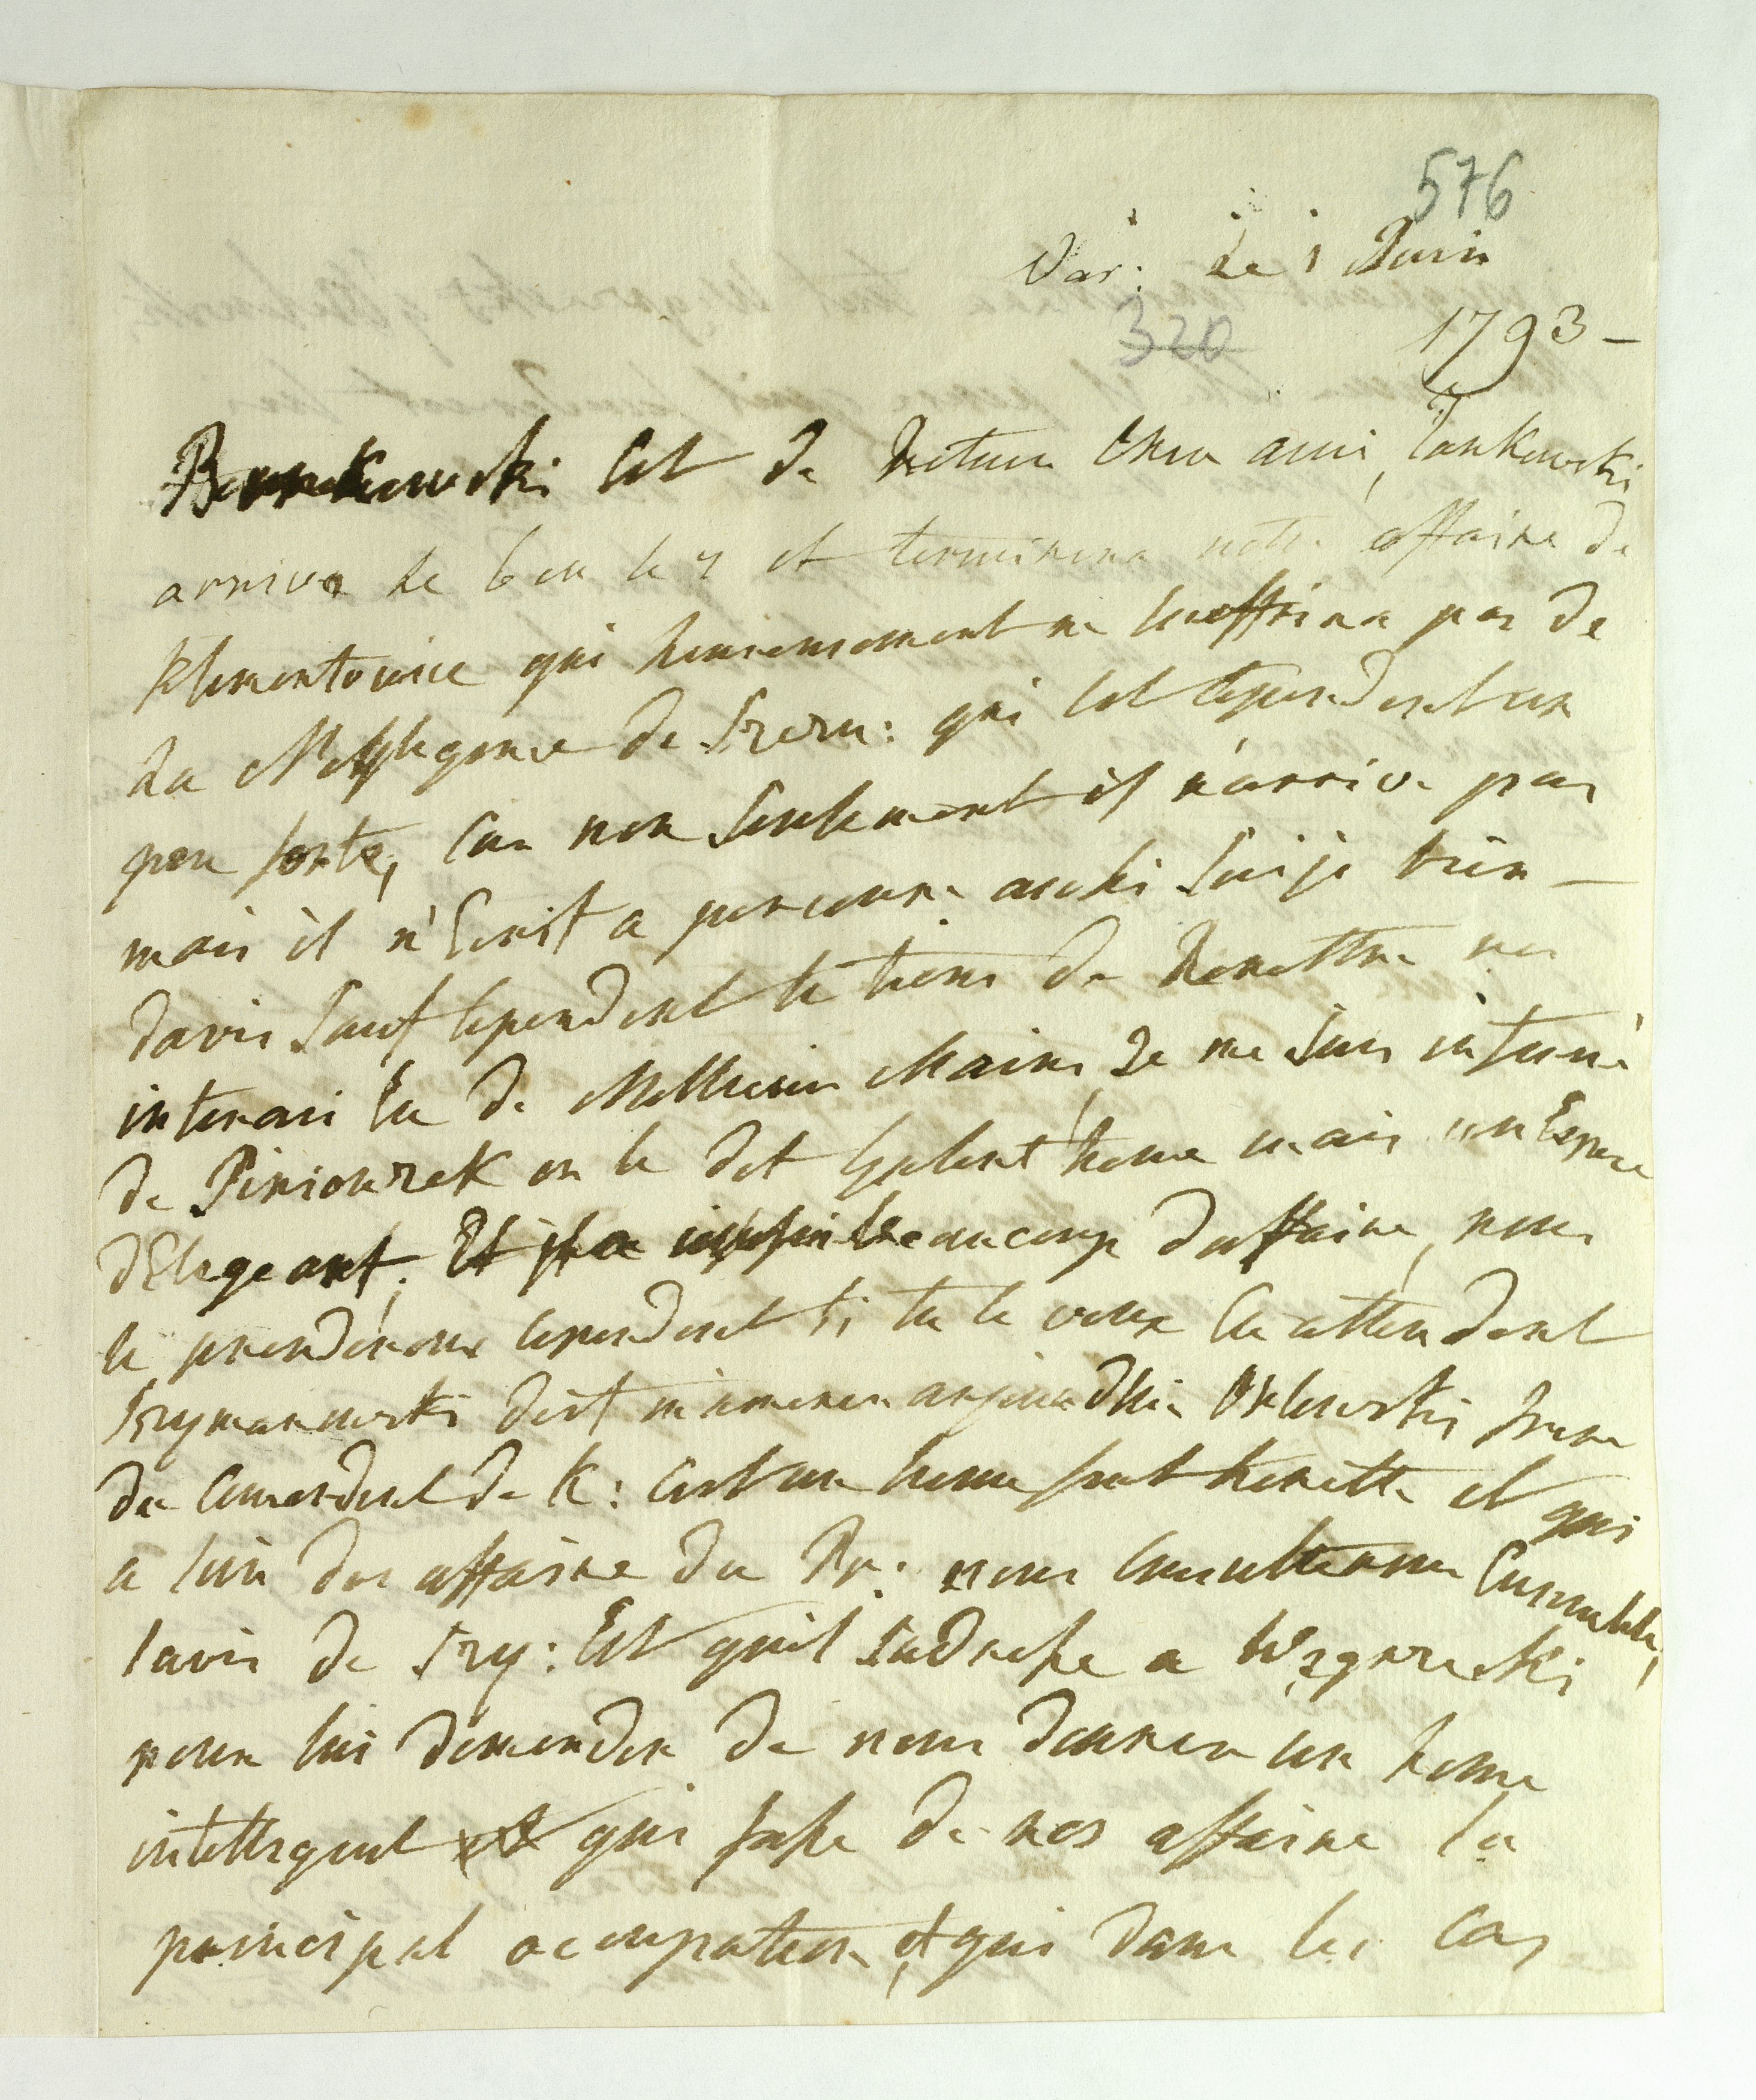 576
Var: Le 1 Juin
320
1793 -
Bonkowski Est de Retour Cher ami, Jankowski
arrive le 6 ou le 7 et terminera notre affaire de
Klementowice qui heureusement ne souffrira pas de
La Neglegence de Szczu: qui Est cependent un
peu forte, Car non Seulement il n'arrive pas
mais il n'Ecrit a personne aussi Suije bien -
davis Sauf cependent le tiens de Remettre nos
interais En de Mellieur Mains, Je me Suis informé
de Pirionzek on le dit home mais un Espece
dElegeant, Et il a beaucoup daffaire, nous
le prenderons cependent Si tu le veux En attendent
Szymanowski doit m'amener aujourdhui Orlowski frere
du Comendent de K: Cest un home fort honette et qui
a Soin des affaire du Pr: nous Consulterons Ensemble,
lavis de Szy: Est quil Sadresse a Wegierski
pour lui demender de nous donner un home
intelligent qui fasse de nos affaire la
principal occupation, et qui dans les Cas